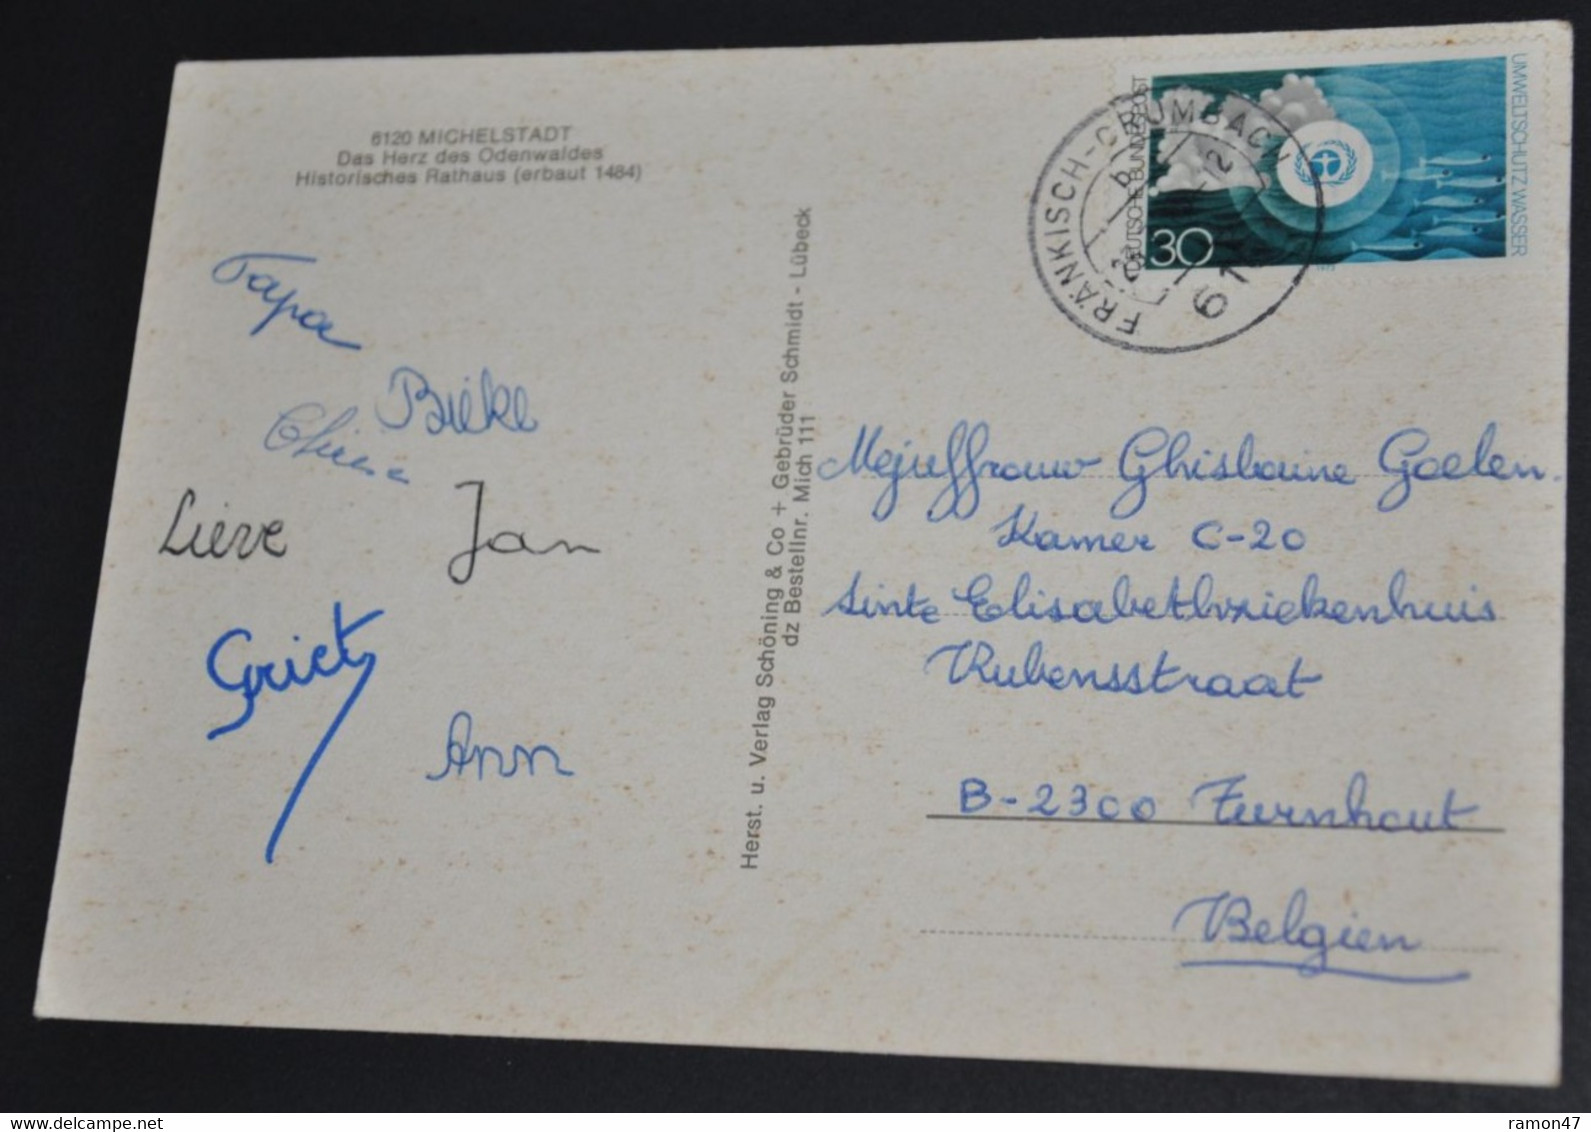 6120 MICHELSTADT
Das Herz des Odenwaldes
Historisches Rathaus (erbaut 1484)
Bieke
Lieve
Jan
Griet
Ann
Herst. u. Verlag Schöning & Co + Gebrüder Schmidt - Lübeck
dz Bestellnr. Mich 111
FRÄNKISCH-CRUMBACH
b
DEUTSCHE BUNDESPOST
30
UMWELTSCHUTZ WASSER
1973
Mejuffrouw Ghislaine Goelen.
Kamer C-20
Sinte Elisabethziekenhuis
Rubensstraat
B-2300 Turnhout
Belgien
www.delcampe.net
ramon47